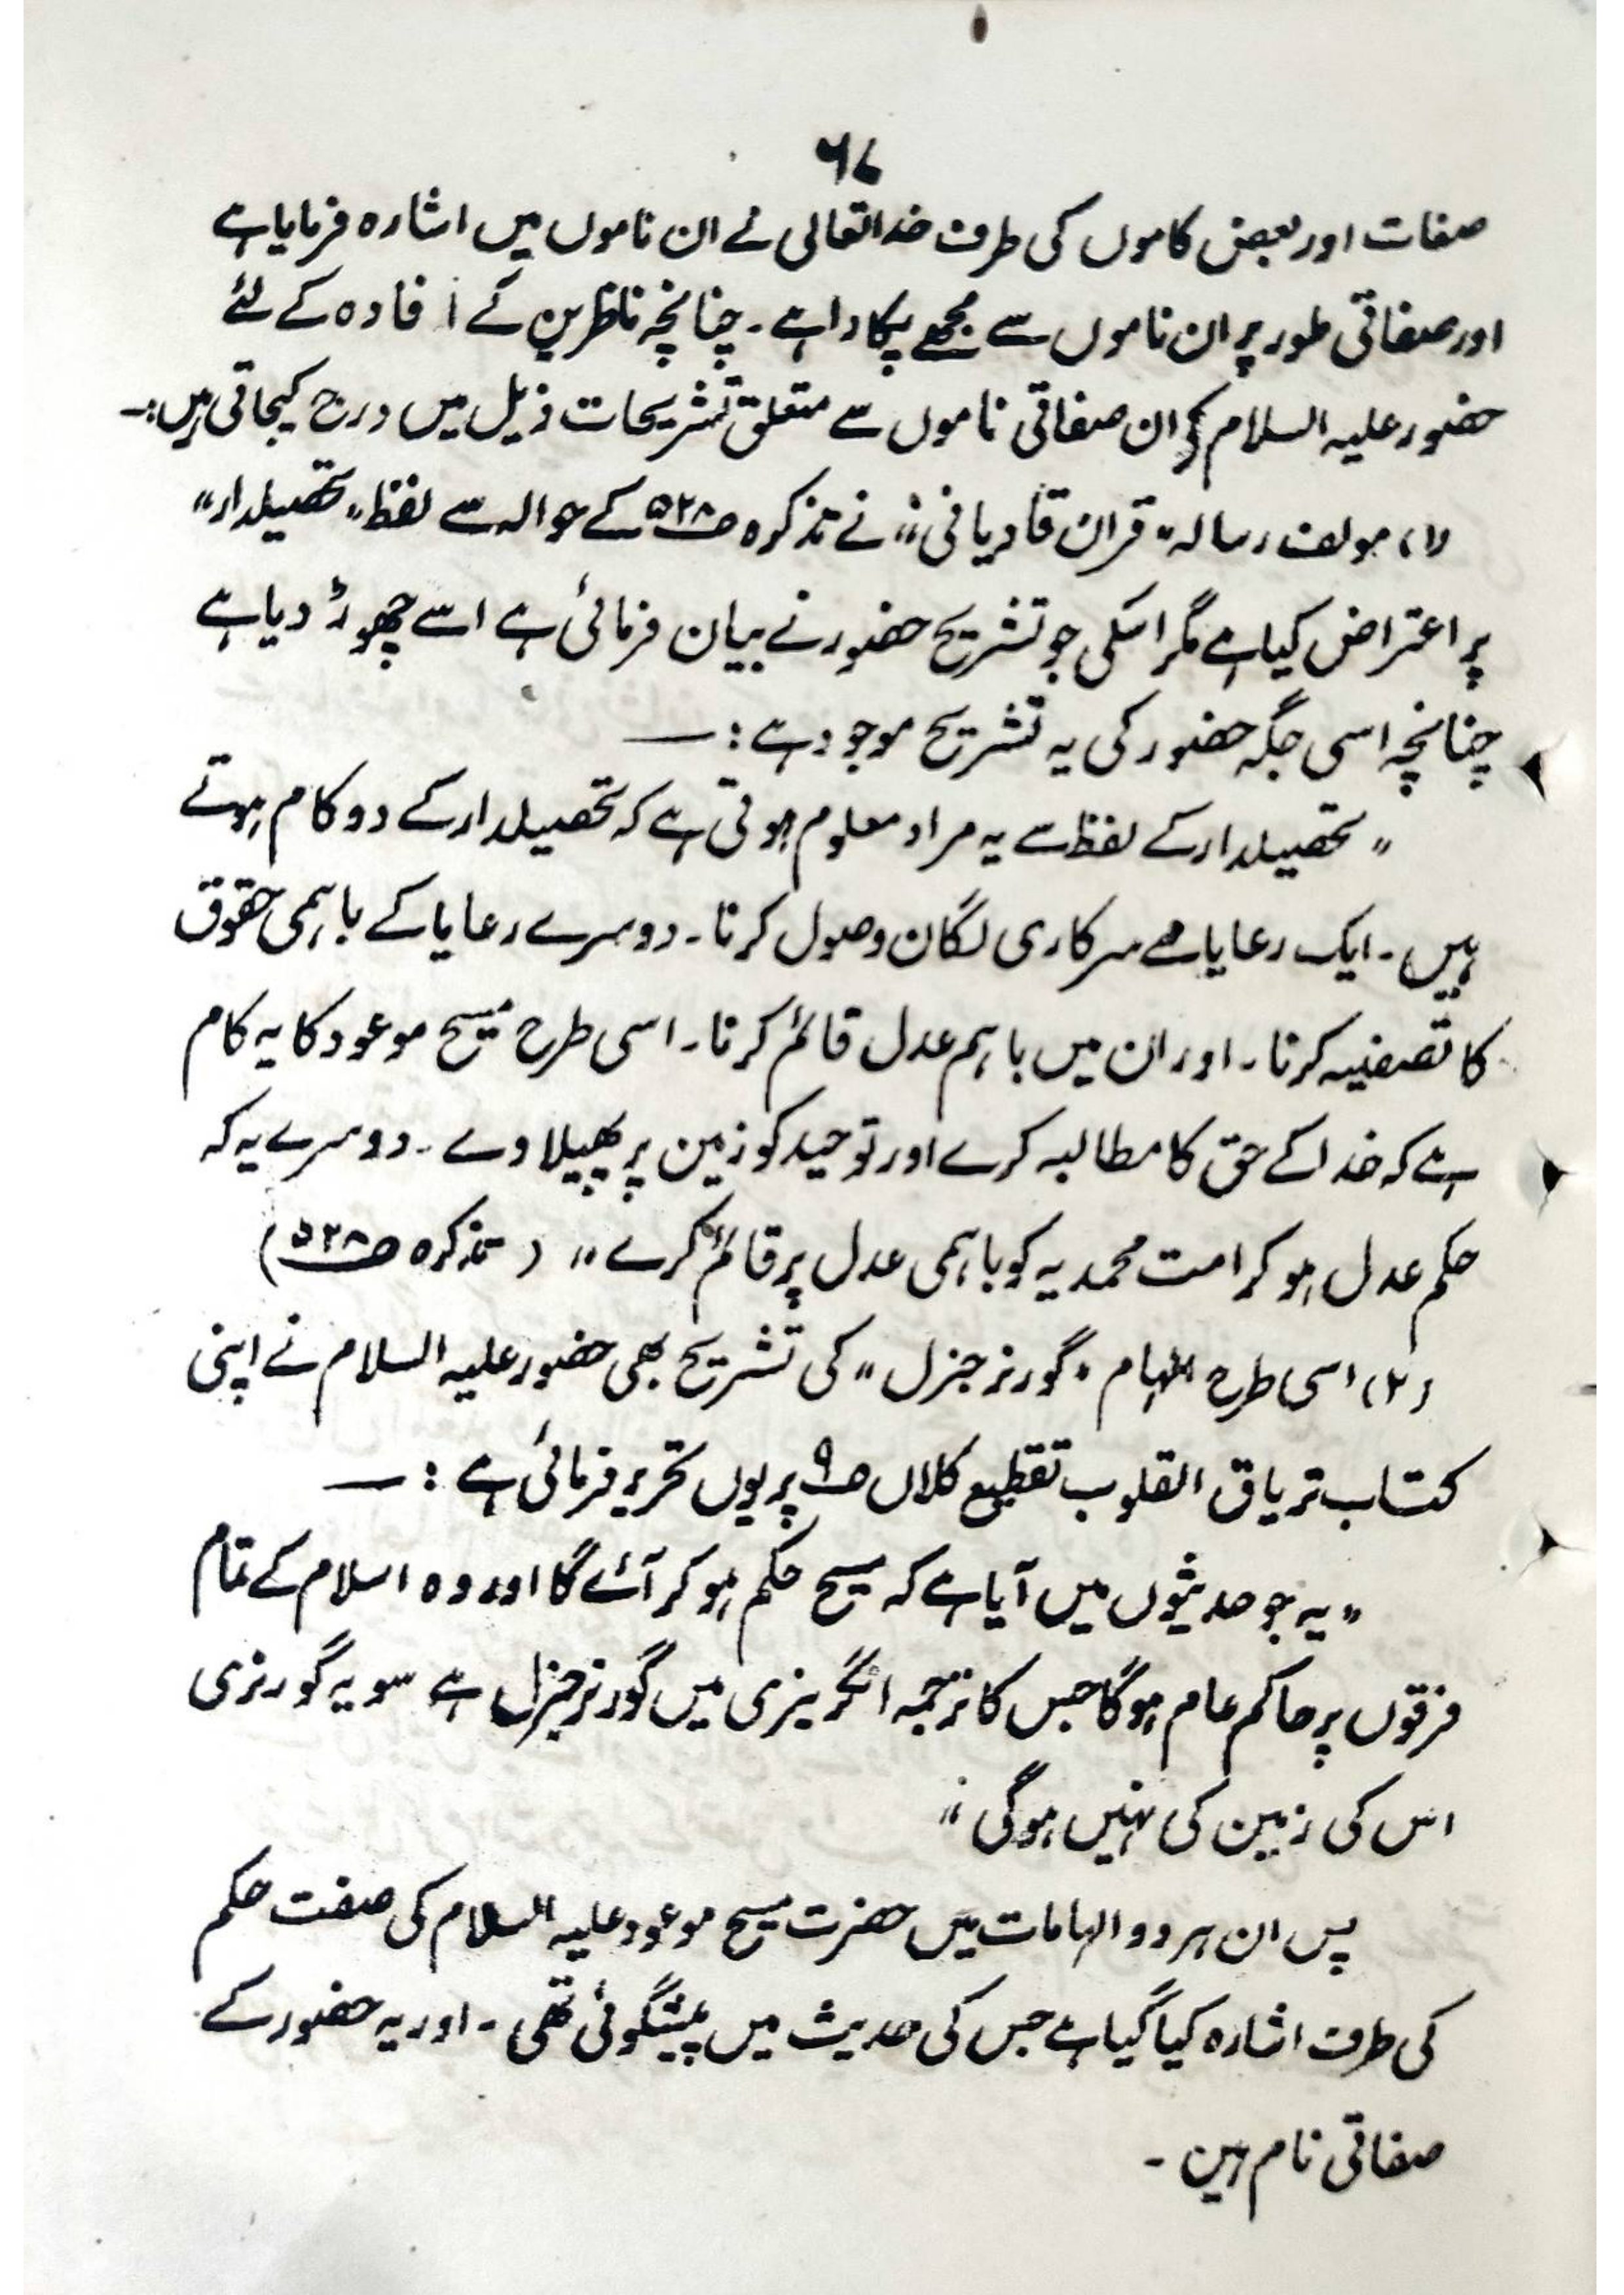 ۶۷
صفات اور بعض کاموں کی طرف خدا تعالی نے ان ناموں میں اشارہ فرمایا ہے
اور صفاتی طور پر ان ناموں سے مجھے پکارا ہے ۔ چنانچہ ناظرین کے افادہ کے لئے
حضور علیہ السلام کی ان صفاتی ناموں سے متعلق تشریحات ذیل میں درج کیجاتی ہیں:۔
(۱) مولف رسالہ "قران قادیانی" نے تذکرہ صفحہ ۵۲۸ کے حوالہ سے لفظ "تحصیلدار"
پر اعتراض کیا ہے مگر اسکی جو تشریح حضور نے بیان فرمائی ہے اسے چھوڑ دیا ہے
چنانچہ اسی جگہ حضور کی یہ تشریح موجود ہے : ــ
"تحصیلدار کے لفظ سے یہ مراد معلوم ہوتی ہے کہ تحصیلدار کے دو کام ہوتے
ہیں ۔ ایک رعایا سے سرکاری لگان وصول کرنا ۔ دوسرے رعایا کے باہمی حقوق
کا تصفیہ کرنا ۔ اور ان میں باہم عدل قائم کرنا ۔ اسی طرح مسیح موعود کا یہ کام
ہے کہ خدا کے حق کا مطالبہ کرے اور توحید کو زمین پر پھیلاوے ۔ دوسرے یہ کہ
حکم عدل ہو کر امت محمدیہ کو باہمی عدل پر قائم کرے" ( تذکرہ صفحہ ۵۲۸ )
(۲) اسی طرح الہام "گورنر جنرل" کی تشریح بھی حضور علیہ السلام نے اپنی
کتاب تریاق القلوب تقطیع کلاں صفحہ ۹ پر یوں تحریر فرمائی ہے : ــ
"یہ جو حدیثوں میں آیا ہے کہ مسیح حکم ہو کر آئے گا اور وہ اسلام کے تمام
فرقوں پر حاکم عام ہوگا جس کا ترجمہ انگریزی میں گورنر جنرل ہے سو یہ گورنری
اس کی زمین کی نہیں ہوگی"
پس ان ہر دو الہامات میں حضرت مسیح موعود علیہ السلام کی صفت حکم
کی طرف اشارہ کیا گیا ہے جس کی حدیث میں پیشگوئی تھی ۔ اور یہ حضور کے
صفاتی نام ہیں ۔